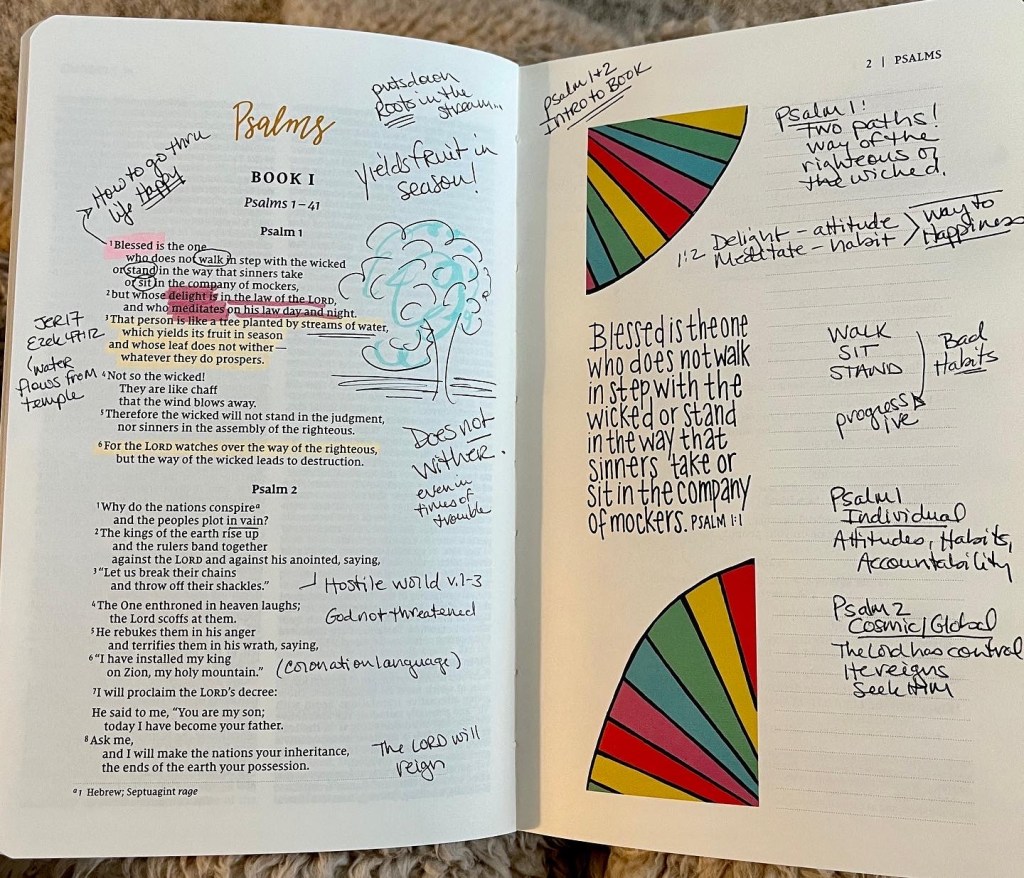 putsdown
Roots in the
stream...
Psalms
How to go thru
life Happy
yields fruit in
season!
BOOK I
Psalms 1–41
Psalm 1
1Blessed is the one
who does not walk in step with the wicked
or stand in the way that sinners take
or sit in the company of mockers,
2but whose delight is in the law of the LORD,
and who meditates on his law day and night.
3That person is like a tree planted by streams of water,
which yields its fruit in season
and whose leaf does not wither—
whatever they do prospers.
JER 17
Ezek 47:12
(water
flows from
temple
4Not so the wicked!
They are like chaff
that the wind blows away.
5Therefore the wicked will not stand in the judgment,
nor sinners in the assembly of the righteous.
6For the LORD watches over the way of the righteous,
but the way of the wicked leads to destruction.
Does not
wither.
even in
times of
trouble
Psalm 2
1Why do the nations conspirea
and the peoples plot in vain?
2The kings of the earth rise up
and the rulers band together
against the LORD and against his anointed, saying,
3“Let us break their chains
and throw off their shackles.”
Hostile world v.1-3
4The One enthroned in heaven laughs;
the Lord scoffs at them.
God not threatened
5He rebukes them in his anger
and terrifies them in his wrath, saying,
6“I have installed my king
on Zion, my holy mountain.”
(coronation language)
7I will proclaim the LORD’s decree:
He said to me, “You are my son;
today I have become your father.
8Ask me,
and I will make the nations your inheritance,
the ends of the earth your possession.
The LORD will
reign
a1 Hebrew; Septuagint rage
2 | PSALMS
Psalm 1+2
INTRO to BOOK
Psalm 1!
Two paths!
way of the
righteous or
the wicked.
1:2 Delight - attitude
Meditate - habit
way to
Happiness
Blessed is the one
who does not walk
in step with the
wicked or stand
in the way that
sinners take or
sit in the company
of mockers. PSALM 1:1
WALK
SIT
STAND
Bad
Habits
progress
ive
Psalm 1
Individual
Attitudes, Habits,
Accountability
Psalm 2
Cosmic/Global
The Lord has control
He reigns
Seek Him